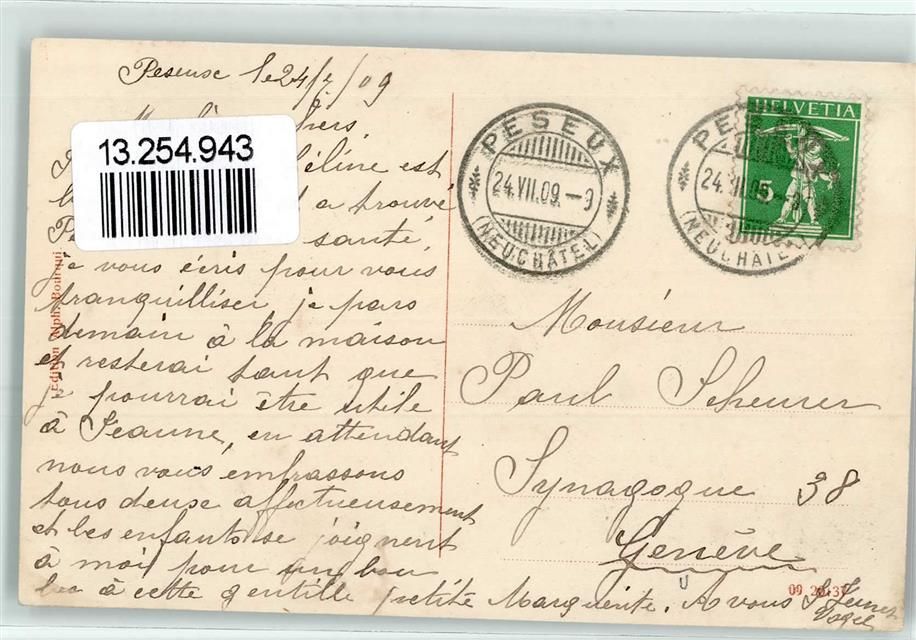 Peseux le 24/7/09
13.254.943
hers,
éline est
a trouvé
santé,
je vous écris pour vous
tranquilliser, je pars
demain à la maison
et resterai tant que
je pourrai être utile
à Jeanne, en attendant
nous vous embrassons
tous deux affectueusement
et les enfants se joignent
à moi pour un bon
bec à cette gentille petite Marguerite. A vous
Edition Alph. Bourqui
PESEUX
24.VII.09.-9
(NEUCHÂTEL)
PE
24.VII.09
(NEUCHÂTEL)
HELVETIA
5
Monsieur
Paul Scheurer
Synagogue 38
Genève
09 20137